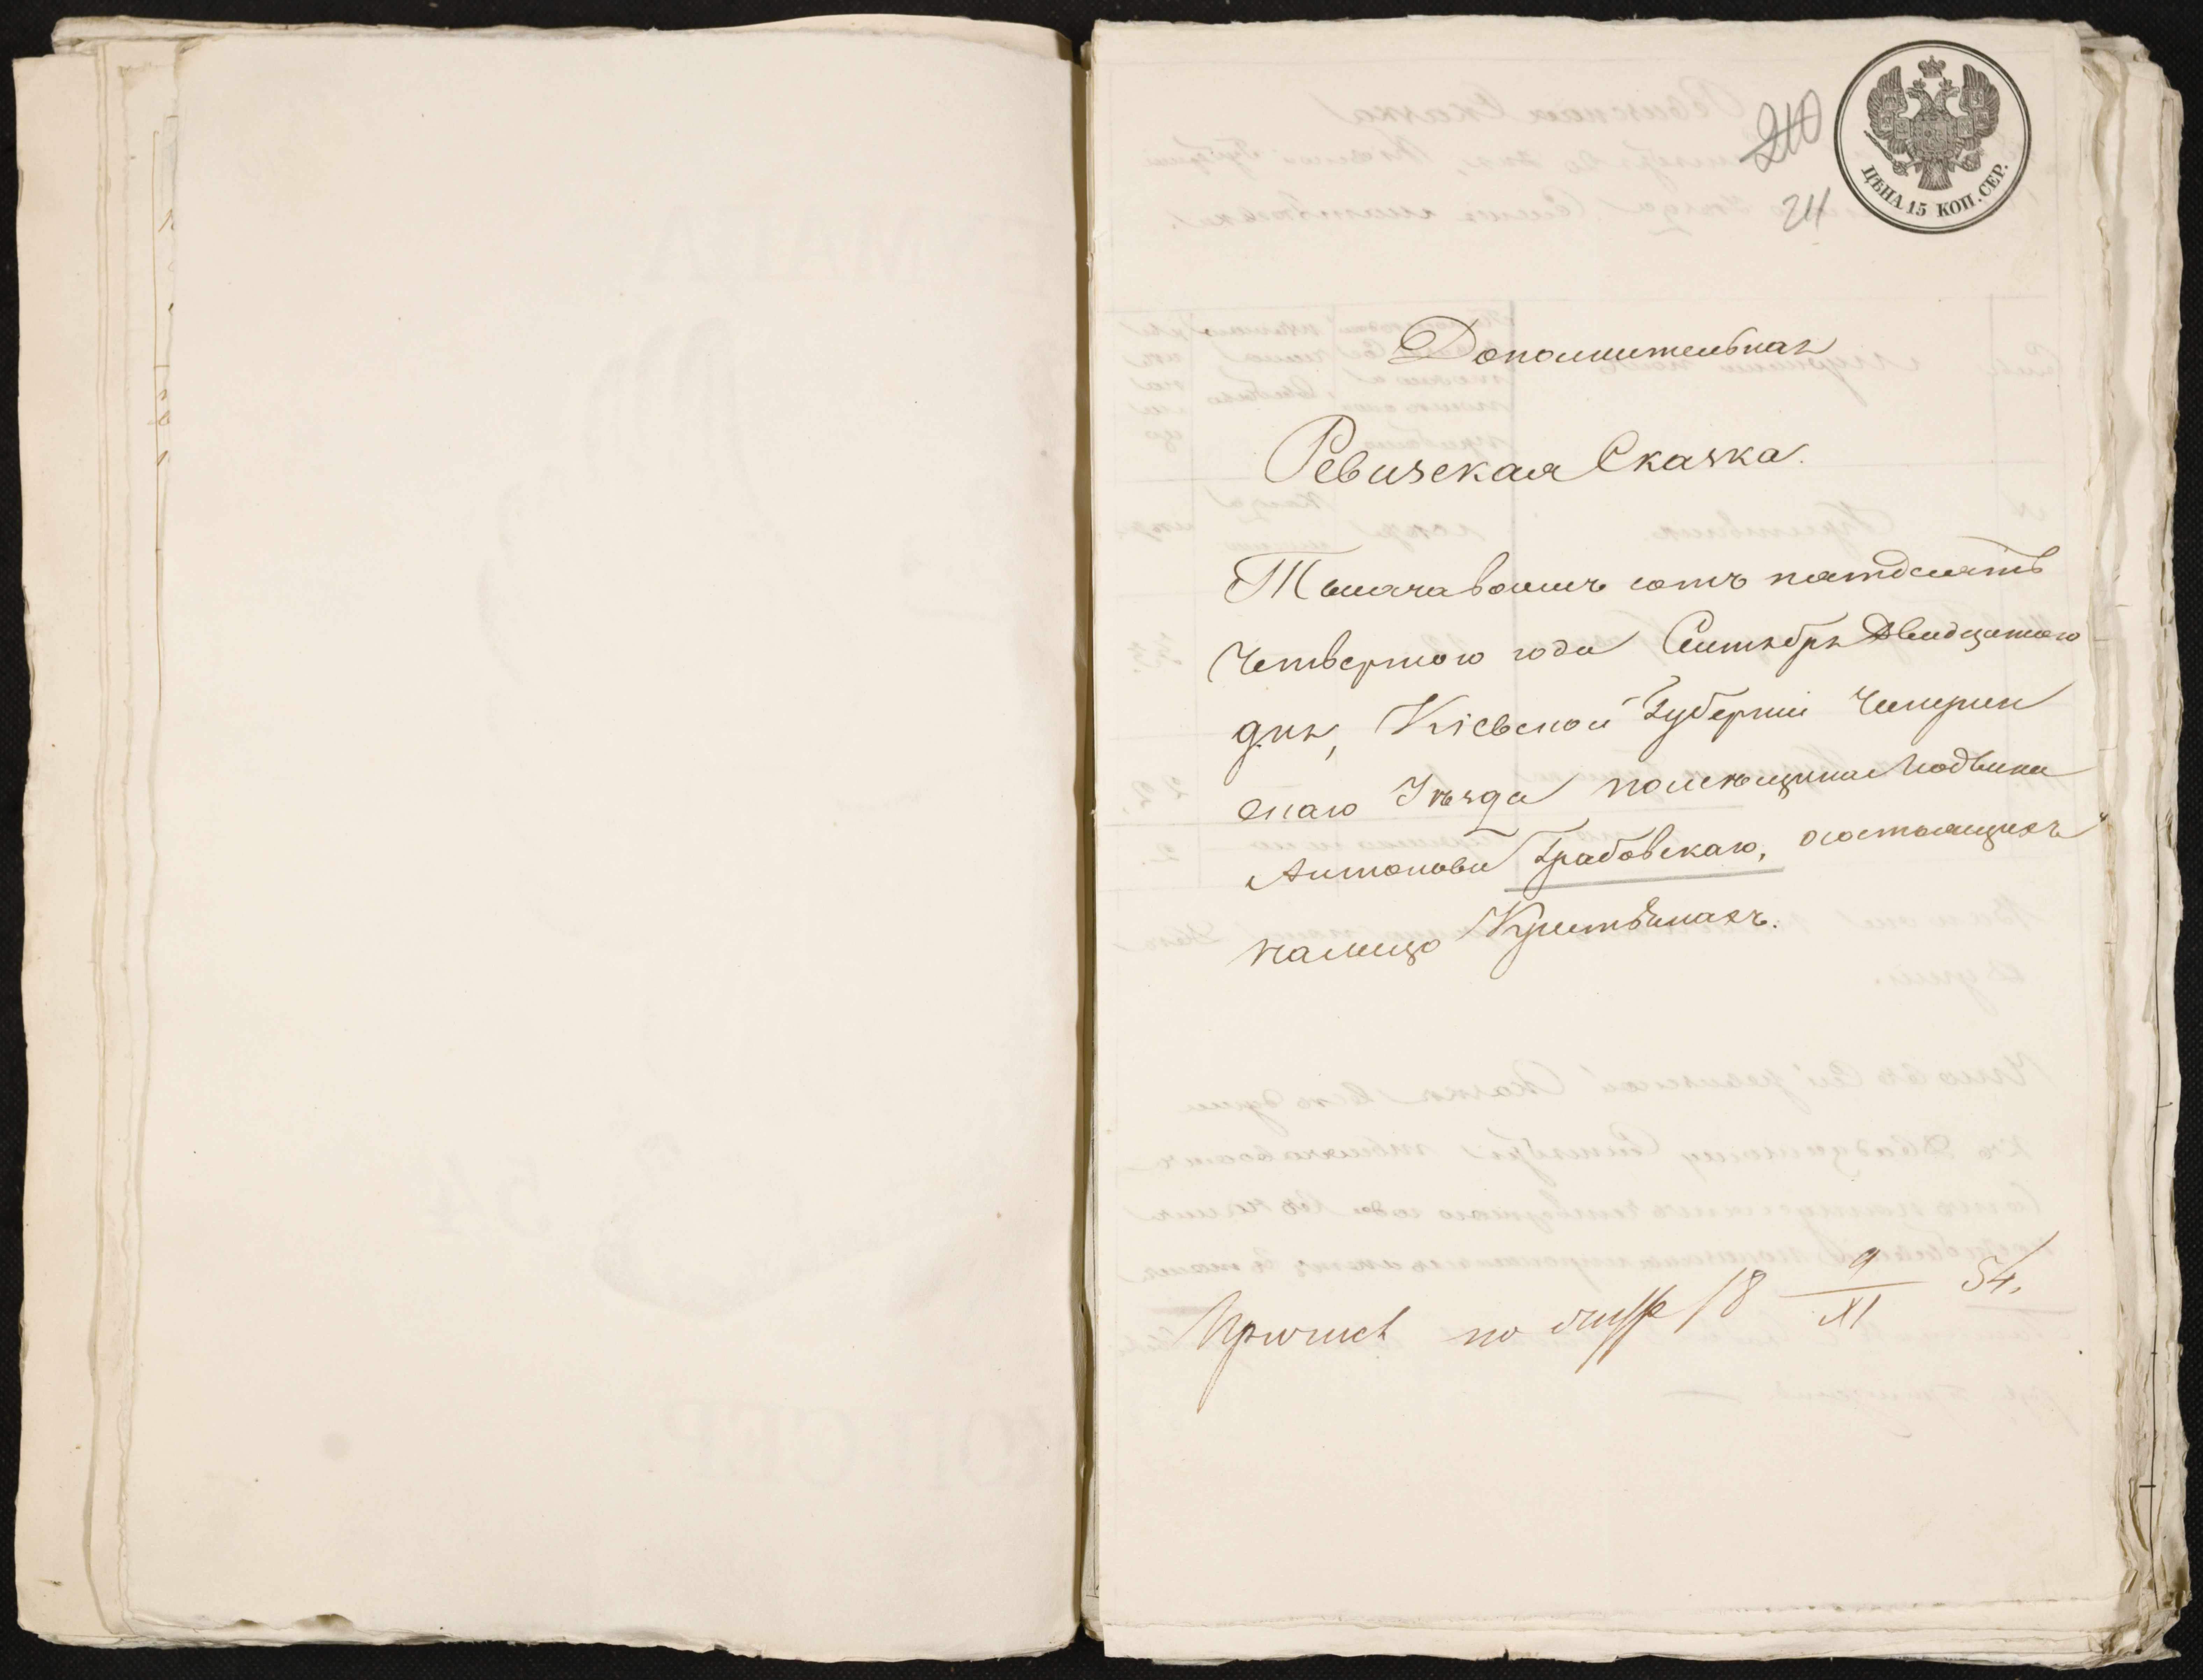 210
211
ЦѢНА 15 КОП. СЕР.
Дополнительная
Ревизская Сказка.
Тысяча восемъ сотъ пятдесятъ
Четвертого года Сентября Двадцатого
дня, Кіевской Губерніи Чигирин
скаго Уѣзда помѣщика Людвика
Антонова Грабовскаго, о состоящихъ
налицо Крестьянахъ.
по 18 9/XI 54.